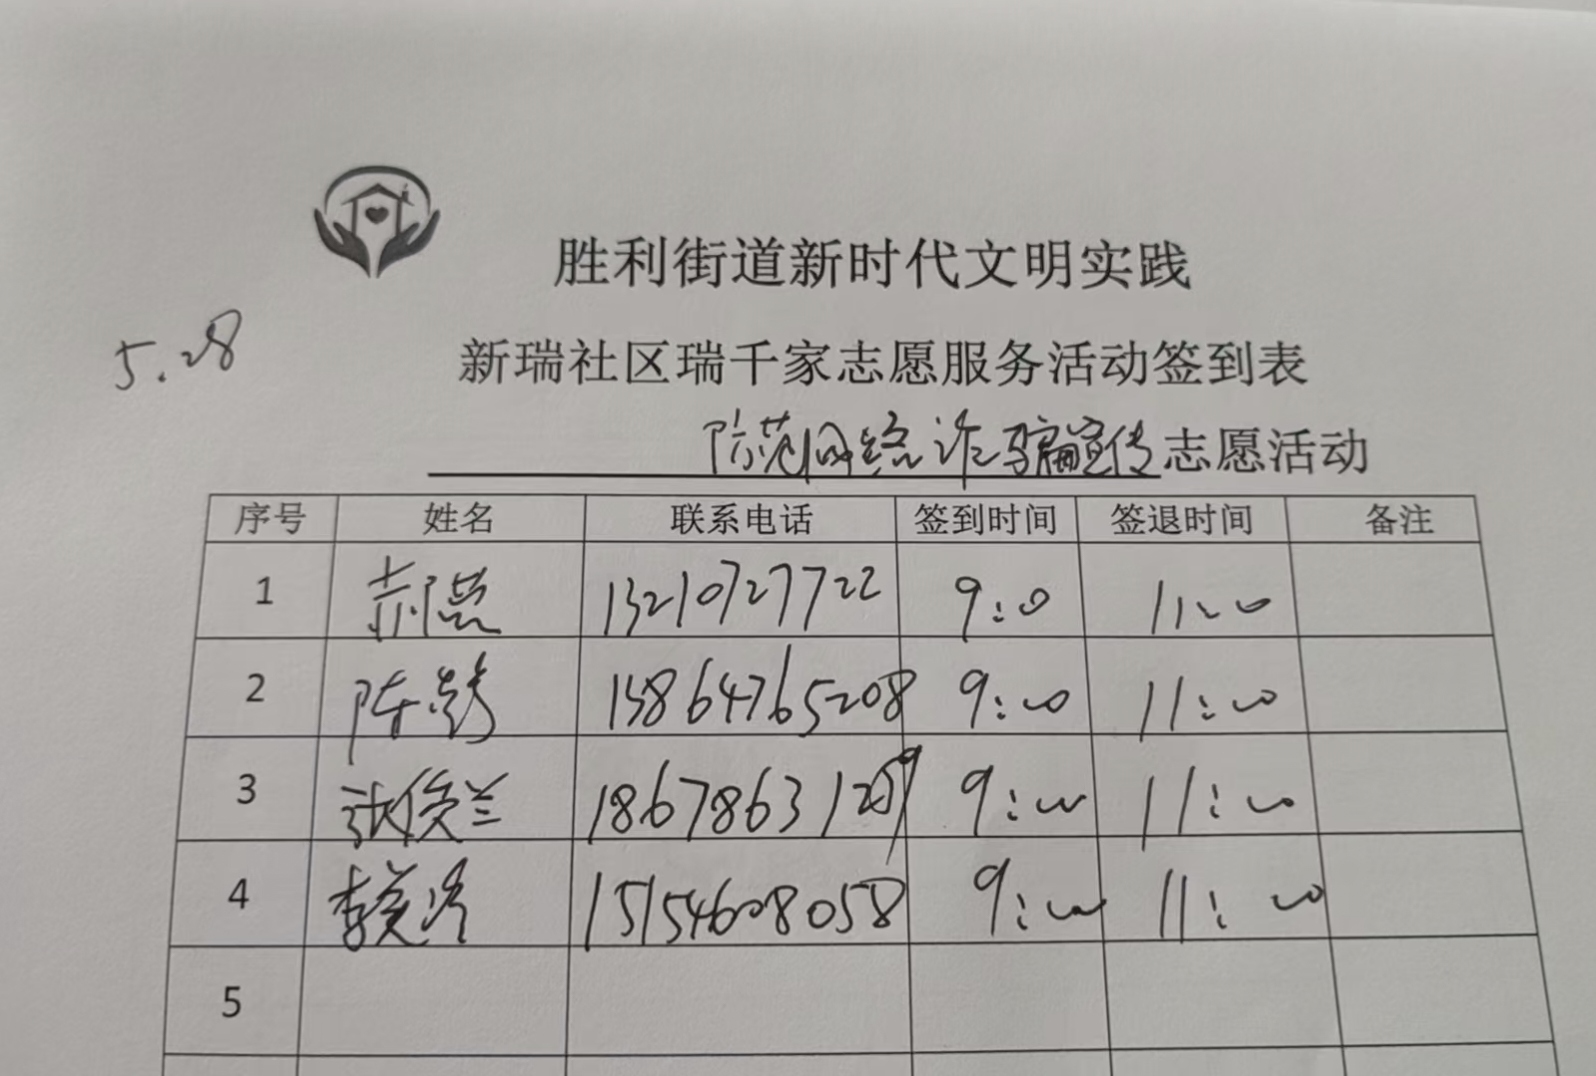 胜利街道新时代文明实践
5.28
新瑞社区瑞千家志愿服务活动签到表
防范网络诈骗宣传志愿活动
序号 姓名 联系电话 签到时间 签退时间 备注
1 13210727722 9:00 11:00
2 陈 15864765208 9:00 11:00
3 张俊兰 18678631259 9:00 11:00
4 李 15154608058 9:00 11:00
5